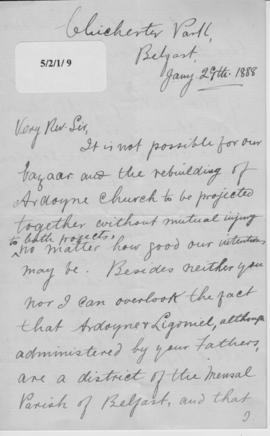 Chichester Park,
Belfast.
5/2/1/9
Jany 29th. 1888
Very Rev. Sir,
It is not possible for our
bazaar and the rebuilding of
Ardoyne Church to be projected
together without mutual injury
to both projects,
no matter how good our intentions
may be. Besides neither you
nor I can overlook the fact
that Ardoyne & Ligoniel, although
administered by your Fathers,
are a district of the Mensal
Parish of Belfast, and that
I